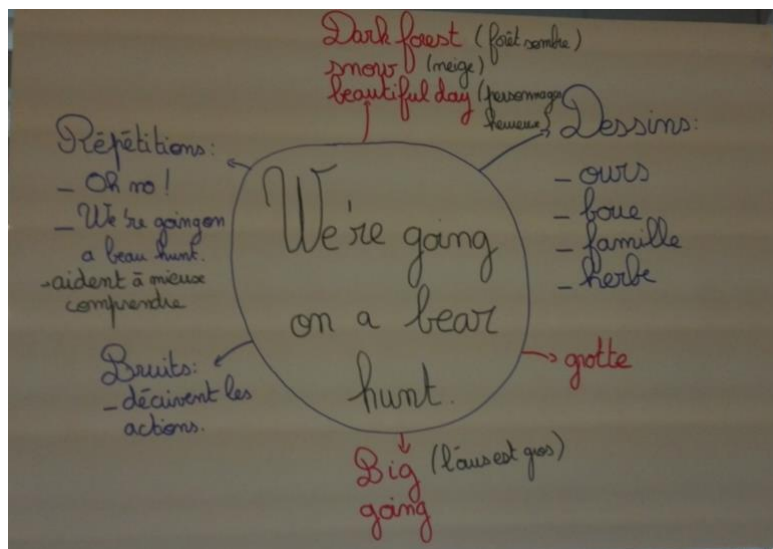 Dark forest (forêt sombre)
snow (neige)
beautiful day (personnages
heureux)
Répétitions:
- Oh no !
- We're going on
a bear hunt.
→ aident à mieux
comprendre
Dessins:
- ours
- boue
- famille
- herbe
We're going
on a bear
hunt.
Bruits:
- décrivent les
actions.
grotte
Big (l'ours est gros)
going